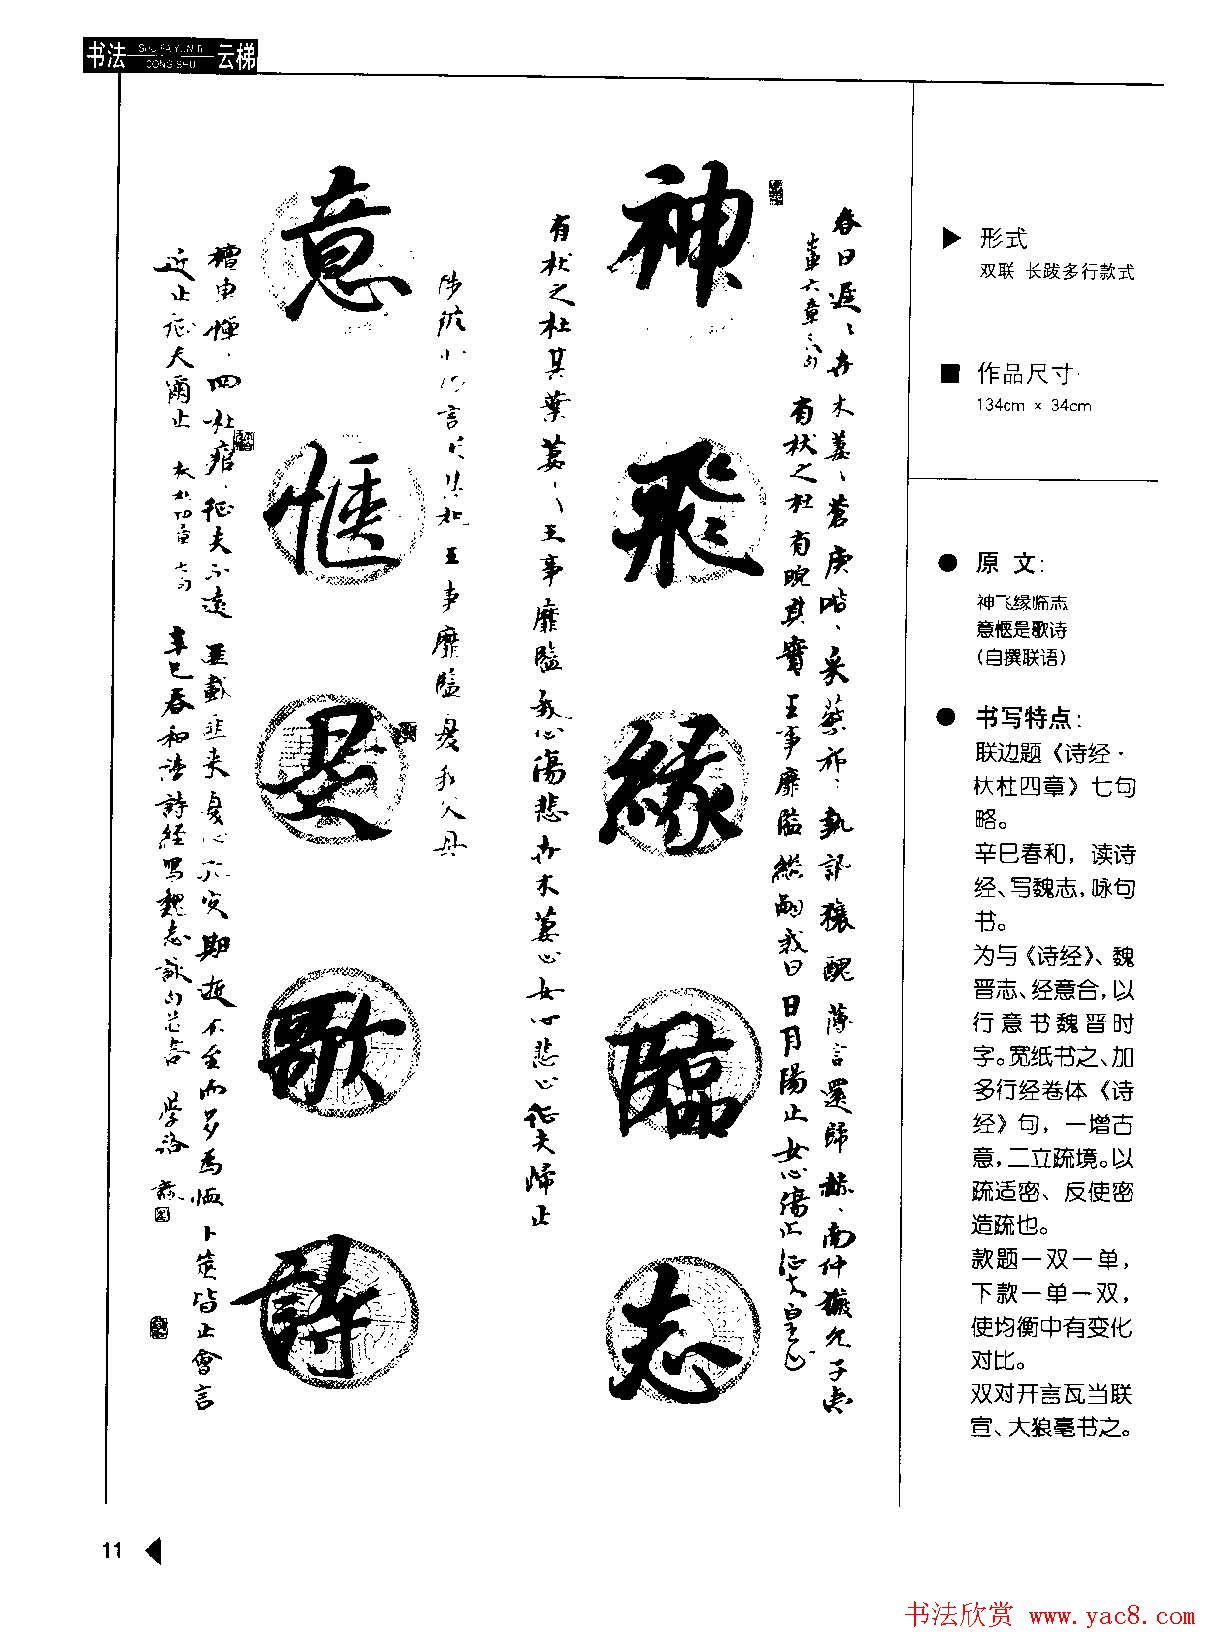 书法
云梯
神飛緣臨志
意惬是歌詩
春日遲、卉木萋、蒼庚喈、采蘩祁、執訊穫醜薄言還歸赫、南仲玁允于夷
有杕之杜有睆其實王事靡盬繼嗣我日日月陽止女心傷止征夫皇止
有杕之杜其葉萋、王事靡盬我心傷悲卉木萋止女心悲止征夫歸止
言采其杞王事靡盬憂我父母
檀車幝、四牡痯、征夫不遠匪載匪来憂心孔疚期逝不至而多為恤卜筮偕止會言
近止征夫邇止
辛巳春和讀詩經寫魏志詠句
形式
双联 长跋多行款式
作品尺寸
134cm × 34cm
原 文：
神飞缘临志
意惬是歌诗
（自撰联语）
书写特点：
联边题《诗经·
杕杜四章》七句
略。
辛巳春和，读诗
经、写魏志，咏句
书。
为与《诗经》、魏
晋志、经意合，以
行意书魏晋时
字。宽纸书之、加
多行经卷体《诗
经》句，一增古
意，二立疏境。以
疏适密、反使密
造疏也。
款题一双一单，
下款一单一双，
使均衡中有变化
对比。
双对开言瓦当联
宣、大狼毫书之。
11
书法欣赏 www.yac8.com